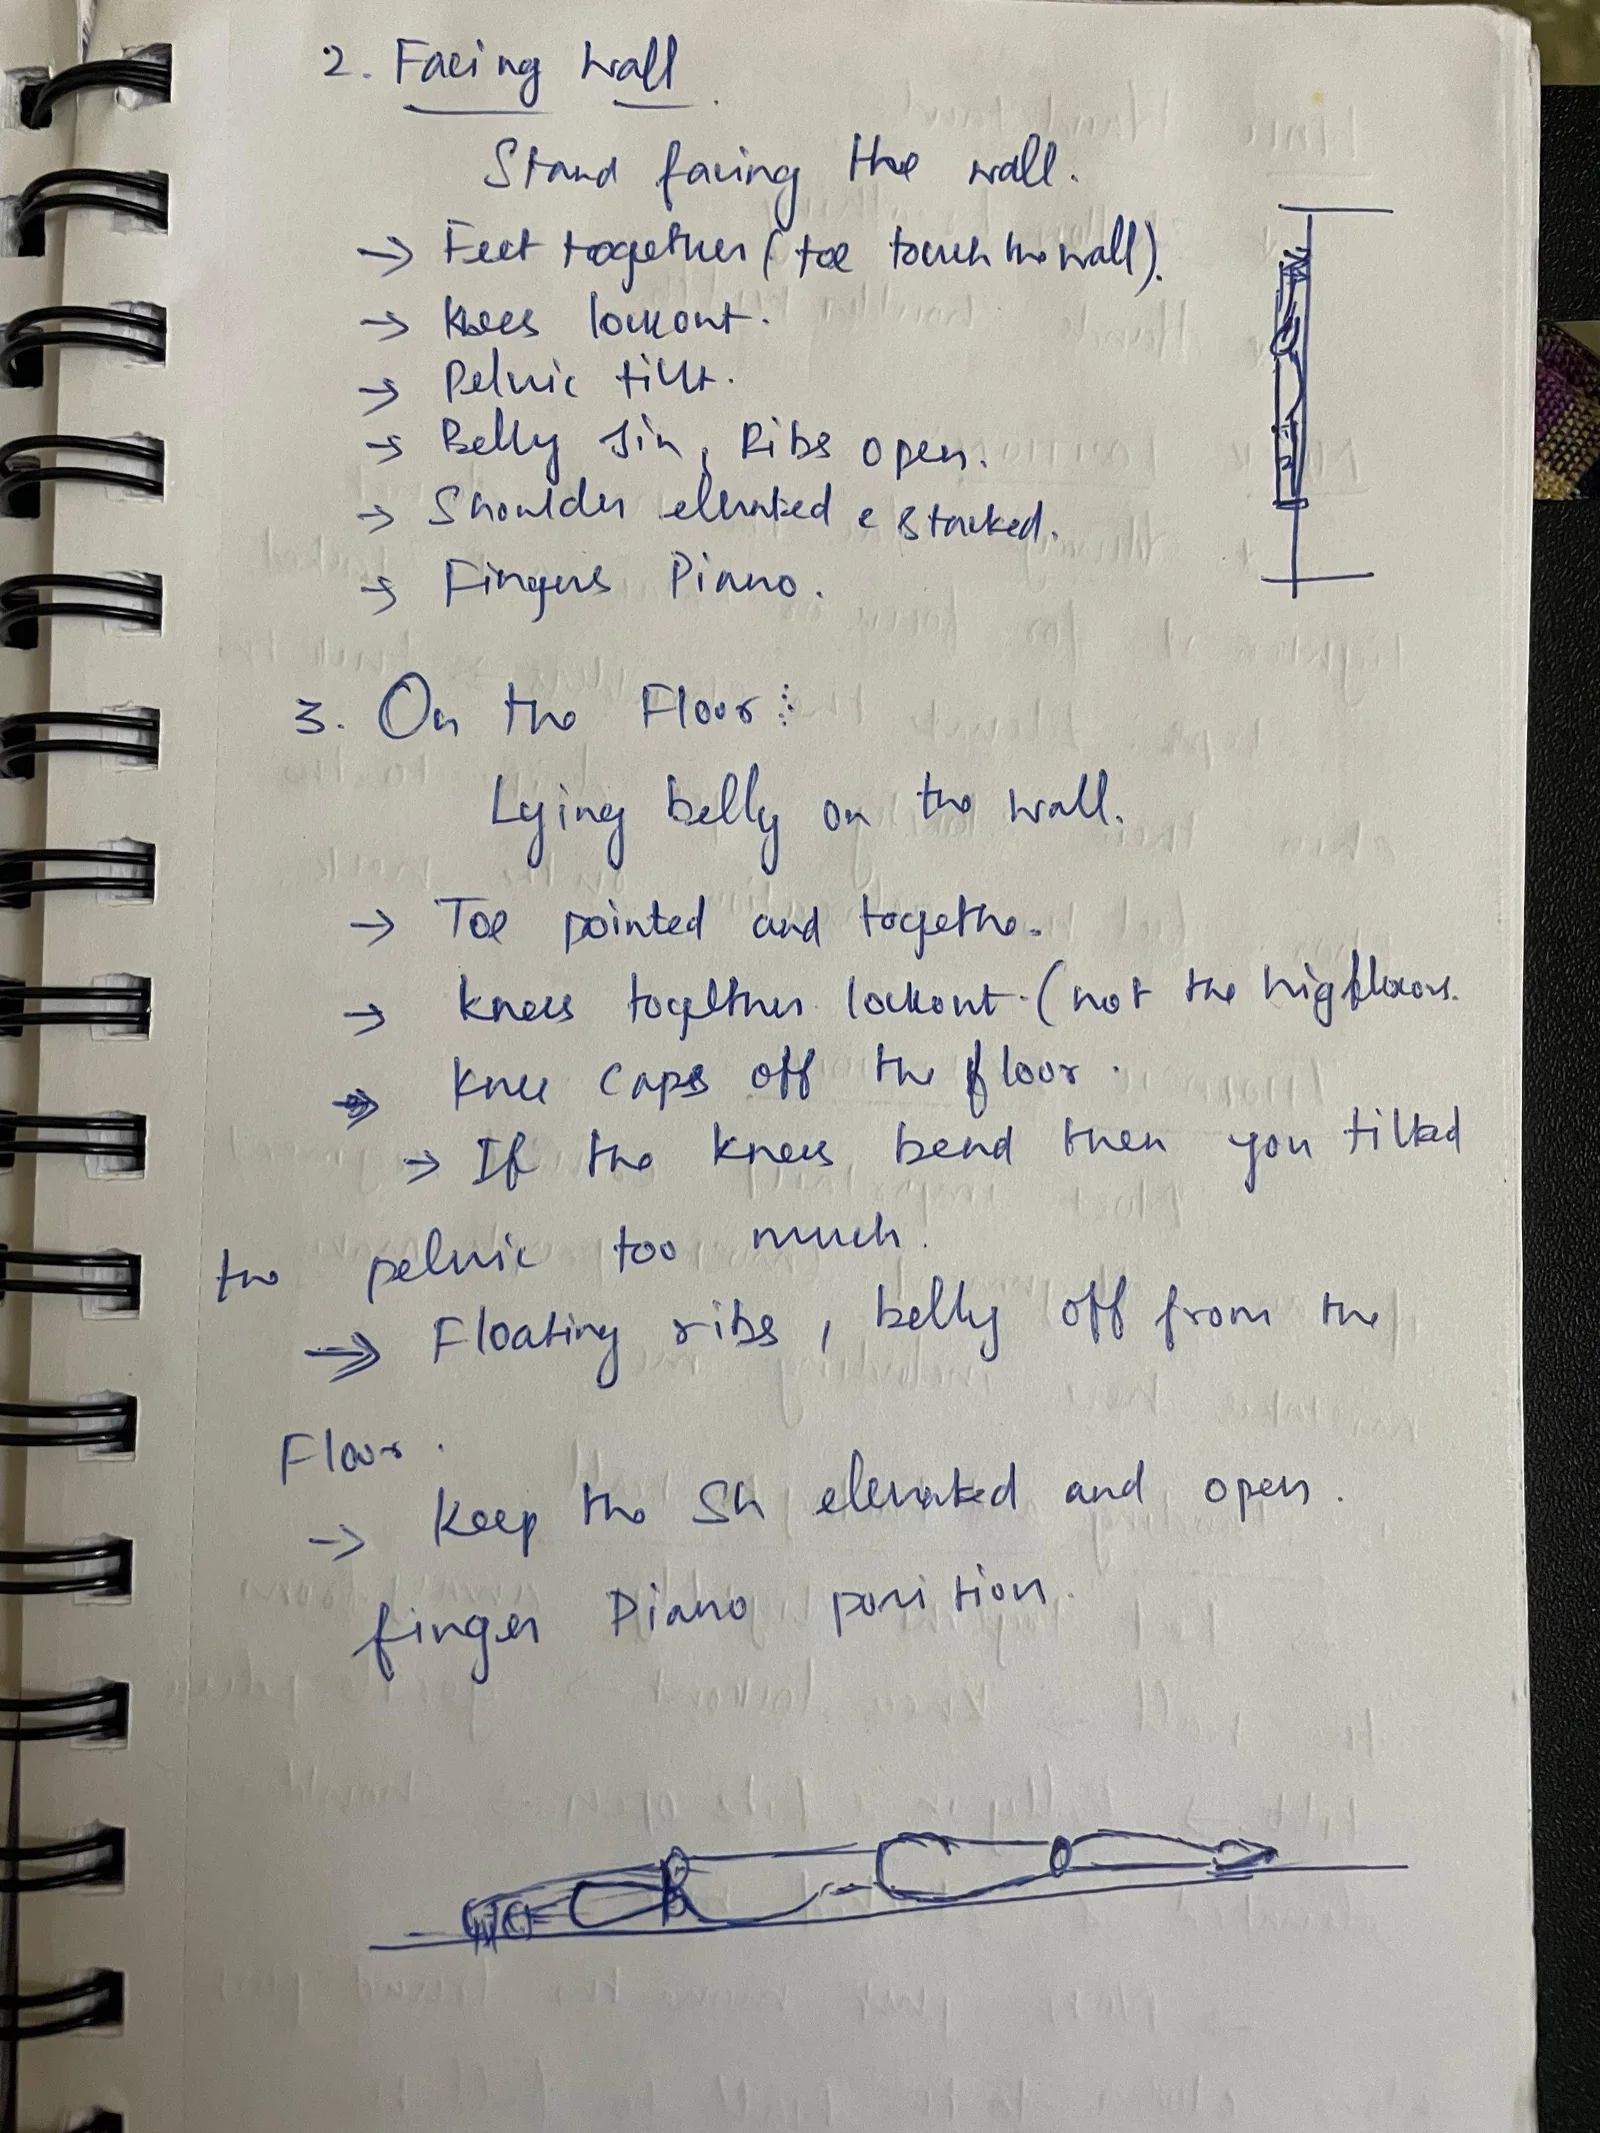 2. Facing Wall.
Stand facing the wall.
→ Feet together (toe touch the wall).
→ Knees lockout.
→ Pelvic tilt.
→ Belly in, Ribs open.
→ Shoulder elevated & stacked.
→ Fingers Piano.
3. On the Floor:
Lying belly on the wall.
→ Toe pointed and together.
→ knees together lockout. (not the
→ knee caps off the floor.
→ If the knees bend then you tilted
the pelvic too much.
→ Floating ribs, belly off from the
Floor.
→ Keep the Sh elevated and open.
finger Piano position.